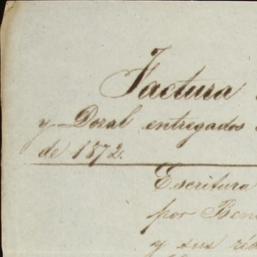 Factura
y Doral entregados
de 1872.
Escritura
por Ben
y sus